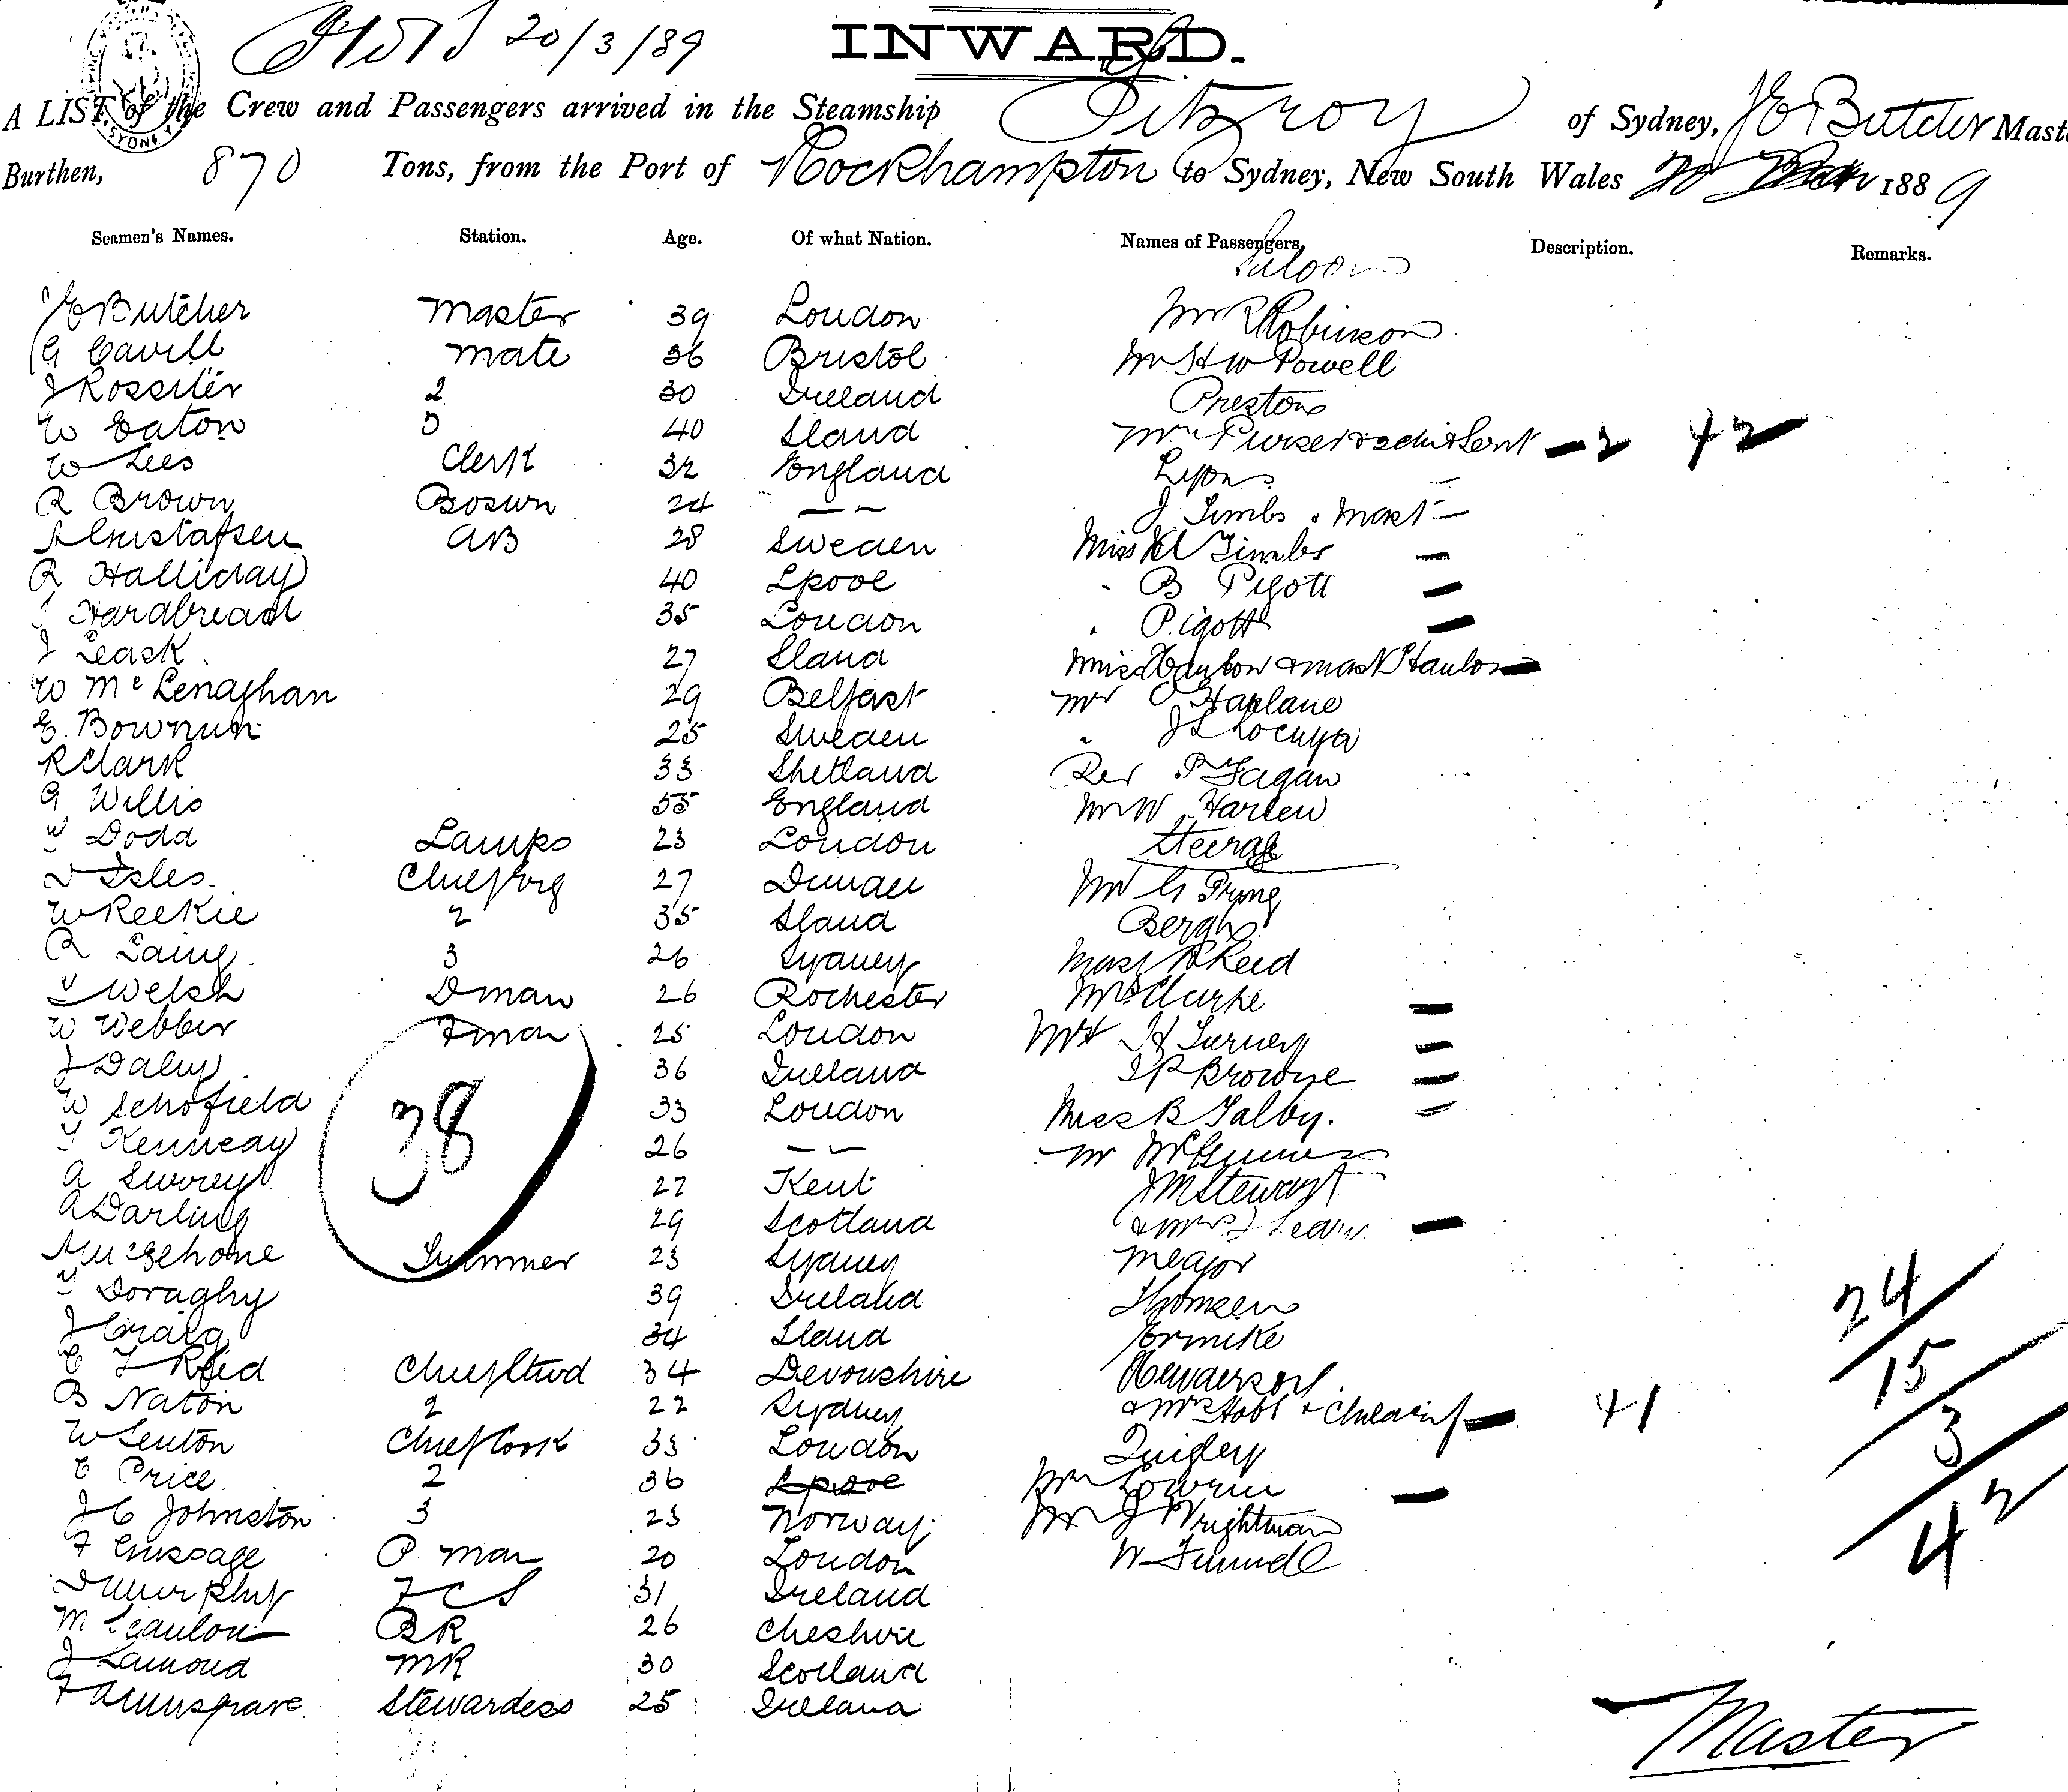 20/3/89
INWARD.
A LIST of the Crew and Passengers arrived in the Steamship Fitzroy of Sydney, J E Butcher Mast
Burthen, 870 Tons, from the Port of Rockhampton to Sydney, New South Wales 1889
Seamen's Names. Station. Age. Of what Nation. Names of Passengers. Description. Remarks.
Saloon
J E Butcher Master 39 London Mr R Robinson
G Cavill Mate 36 Bristol Mr H W Powell
J Rossiter 2 30 Ireland Preston
W Eaton 3 40 Sland Mrs Purser & 2 chi & Servt - 2 42
W Lees Clerk 32 England Lyons
R Brown Bosun 24 — — J Timbs & Mast
A Gustafsen AB 28 Sweden Miss Timbs
R Halliday 40 Lpool B Pigott
Hardbread 35 London Pigott
J Leask 27 Sland Miss Hanlon & Mast Hanlon
W McLenaghan 29 Belfast Mr Haplane
E. Bowman 25 Sweden J L
R Clark 33 Shetland Rev P Fagan
G Willis 55 England Mr W Harlen
W Dodd Lamps 23 London Steerage
D Isles Chief Eng 27 Dundee Mr G Pryme
W Reekie 2 35 Sland Bergh
R Laing 3 26 Sydney Mast Reid
J Welsh Dman 26 Rochester Mrs Clarke
W Webber Fman 25 London H Turney
J Daley 36 Ireland Browne
W Schofield 33 London Miss B Talby.
38
T Kennedy 26 — — Mr
A Surrey 27 Kent J M Stewart
A Darling 29 Scotland & Mrs J Leary
McGehone Trimmer 23 Sydney Meajor
Doraghy 39 Ireland Thomsen
J Craig 34 Sland Ormike
C J Reid Chief Stwd 34 Devonshire Henderson
B Naton 2 22 Sydney & Mrs Hobb & Child inf 41
W Senton Chief Cook 33 London Quigley
C Price 2 36 Lpool Mr
J C Johnston 3 23 Norway Mr J Wrightman
F Gussage P man 20 London W Funnell
D Murphy F C S 31 Ireland
M Scanlon BR 26 Cheshire
J Lamond MR 30 Scotland
F A Musgrave Stewardess 25 Ireland
24
15
3
42
Master